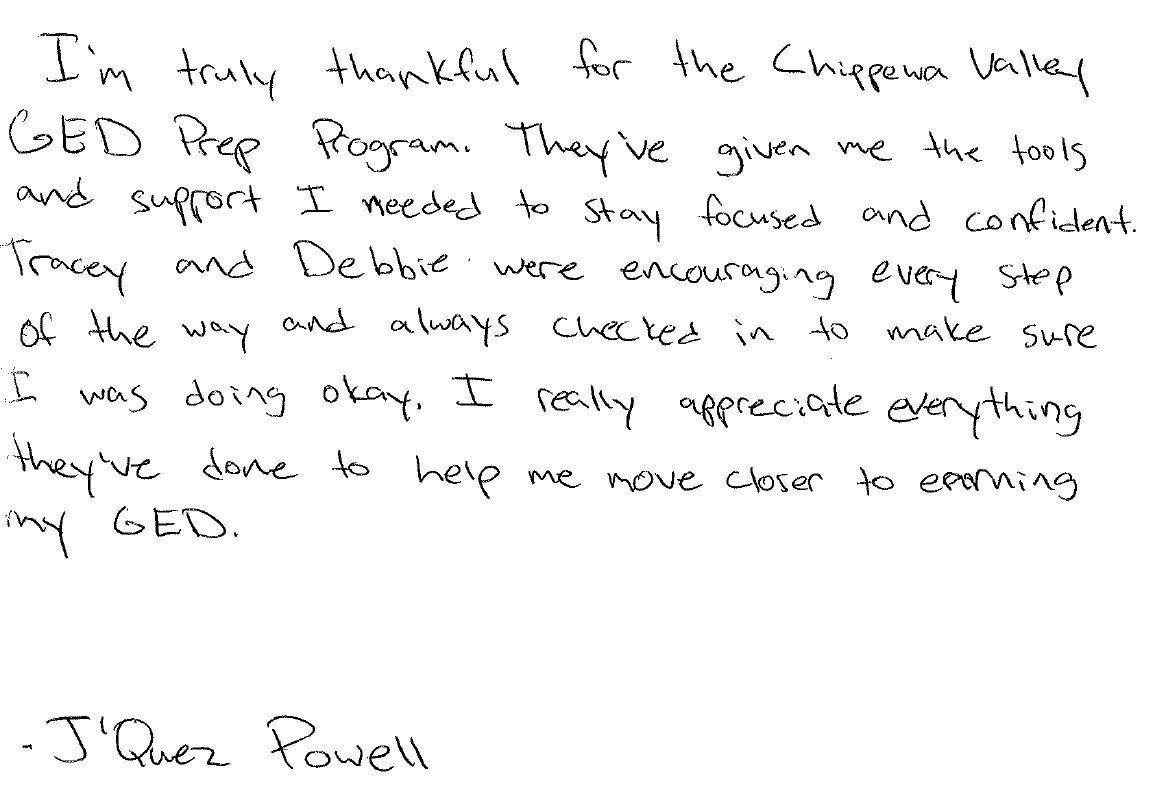 I'm truly thankful for the Chippewa Valley
GED Prep Program. They've given me the tools
and support I needed to stay focused and confident.
Tracey and Debbie were encouraging every step
of the way and always checked in to make sure
I was doing okay. I really appreciate everything
they've done to help me move closer to earning
my GED.
- J'Quez Powell